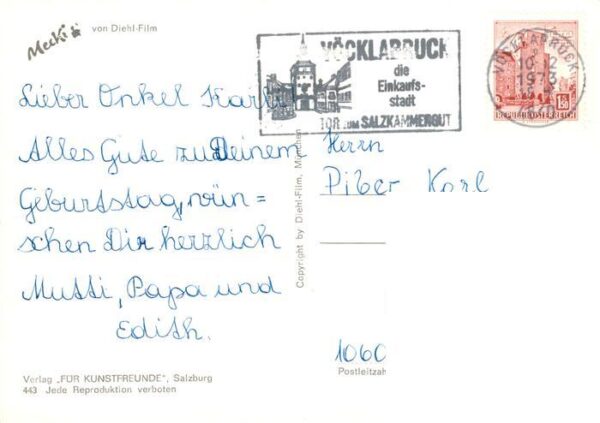 Mecki
von Diehl-Film
VÖCKLABRUCK
die
Einkaufs-
stadt
TOR ZUM SALZKAMMERGUT
VÖCKLABRUCK
10.2
1973
4840
150
REPUBLIK ÖSTERREICH
Lieber Onkel Karl!
Alles Gute zu Deinem
Geburtstag, wün =
schen Dir herzlich
Mutti, Papa und
Edith.
Copyright by Diehl-Film, München
Herrn
Piber Karl
1060
Postleitzah
Verlag „FÜR KUNSTFREUNDE", Salzburg
443 Jede Reproduktion verboten